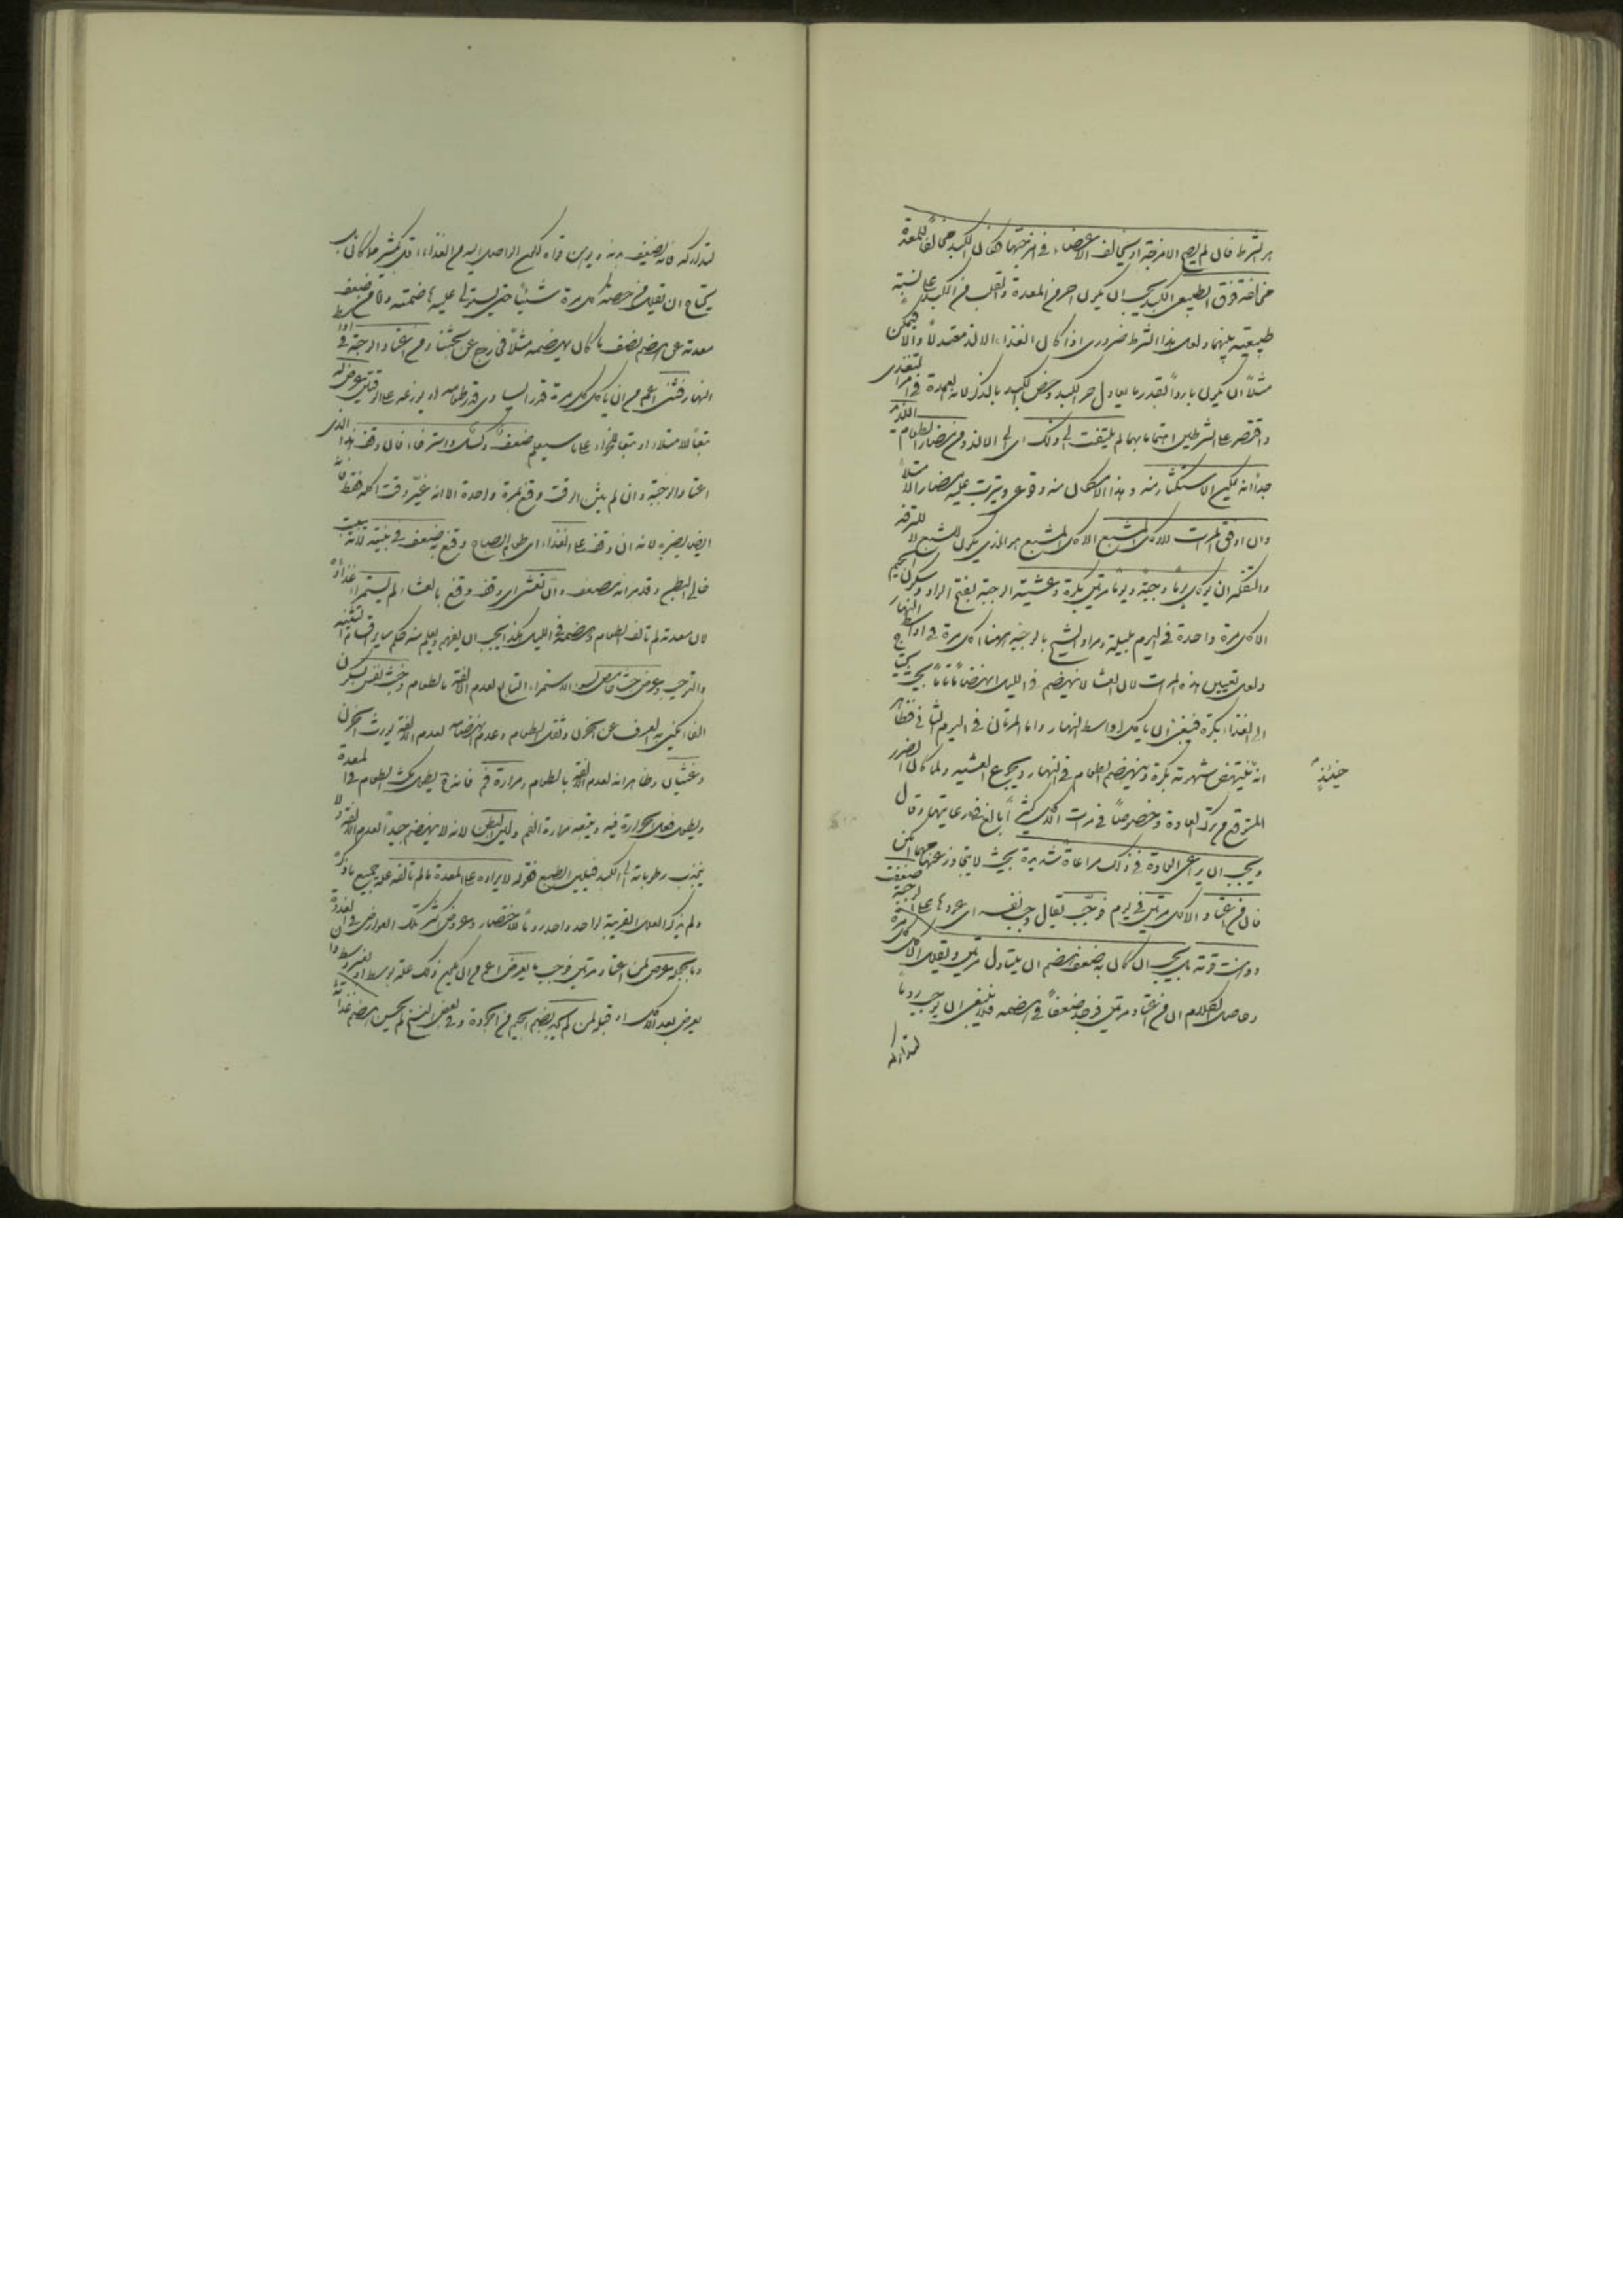 هو الشرط فان لم يصح الامزجة او يخالف الاعضاء فى امزجتها فكان الكبد مخالفا للمعدة
مخالفة فوق الطبيعى الكبد يجب ان يكون احر من المعدة والقلب من الكبد على نسبة
طبيعية بينهما ولعل هذا الشرط ضرورى اذا كان الغذاء الالذ معتدلا والا فيمكن
مثلا ان يكون باردا بقدر ما يعادل حر الكبد وخص الكبد بالذكر لانه العمدة فى امر التغذى
واقتصر على الشرطين اهتماما بهما لم يلتفت الى ذلك اى الى الالذ ومن مضار الطعام اللذيذ
جدا انه يمكن الاستكثار منه وهذا الامكان منه وقوعى ويترتب عليه مضار الامتلاء
وان اوفق المرات للاكل المشبع الاكل المشبع هو الذى يكون للشبع لا للترفه
والتفكه ان يوكل يوما وجبة ويوما مرتين بكرة وعشية الوجبة بفتح الواو وسكون الجيم
الاكل مرة واحدة فى اليوم بليلته ومراد الشيخ بالوجبة ههنا اكل مرة فى اواسط النهار
ولعل تعيين هذه المرات لان العشاء لا ينهضم فى الليل انهضاما تاما بحيث يحتاج
الى الغذاء بكرة فينبغى ان ياكل اواسط النهار واما المرتان فى اليوم الثانى فظاهر
انه ينتهض شهوته بكرة وينهضم الطعام فى النهار ويجوع العشية ولما كان الضرر
حينئذ
المتوقع من ترك العادة وخصوصا فى مرات الاكل كثيرا بالغ فى رعايتها وقال
ويجب ان يراعى العادة فى ذلك مراعاة شديدة بحيث لا يتجاوز عنها مهما امكن
فان من اعتاد الاكل مرتين فى يوم فوجب يقال وجب نفسه اى عودها على الوجبة ضعف
ووهنت قوته بل يجب ان كان به ضعف هضم ان يتناول مرتين ويقلل الاكل كل مرة
وحاصل الكلام ان من اعتاد مرتين فوجد ضعفا فى هضمه فلا ينبغى ان يوجب روما
لتداركه
لتداركه فانه يضعف بدنه ويوهن قواه لكن الواصل اليه من الغذاء اقل بكثير مما كان به
يحتاج ان يقلل من حصة كل مرة شيئا حتى يستولى عليه هاضمته ولا من ضعف
معدته عن هضم نصف ما كان يهضمه مثلا فى رجع عن تجشا ومن اعتاد الوجبة فى
النهار فثنى اعم من ان ياكل كل مرة قدر الساوى قدر طعامه او يوزعه على الوقتين عرض له
تبعا للامتلاء او تبعا للخواء على ما سيعلم ضعف وكسل واسترخاء فان وقف هذا الذى
اعتاد الوجبة وان لم يثن الوقت وقنع بمرة واحدة الا انه غير وقت اكله فقط فانه
ايضا يضره لانه ان وقف على الغذاء اى طعام الصباح وقنع به ضعف فى بنيته لانه يبيت
خالى البطن وقد مر انه مضعف وان تعشى اى وقف وقنع بالعشاء لم يستمرئ غذاؤه
لان معدته لم تالف الطعام وهضمه فى الليل هكذا يجب ان يفهم ويعلم منه حكم ساير اقسام التثنية
والتوجيب وعرض جشاء حامض لسوء الاستمراء التابع لعدم الالفة بالطعام وخبث نفس بسكون
الفاء يكنى به العرف عن الحزن وثقل الطعام وعدم انهضامه لعدم الالفة يورث الحزن
وغثيان وظاهر انه لعدم الالفة بالطعام ومرارة فم فانه ح يطول مكث الطعام فى المعدة
ويطول فعل الحرارة فيه ويتبعه مرارة الفم ولين البطن لانه لا ينهضم جيدا لعدم الالفة ولا
ينجذب رطوباته الى الكبد فيلين الطبع فقوله لايراده على المعدة ما لم تالفه علة جميع ما ذكره
ولم يذكر العلل القريبة لواحد واحد روما للاختصار وعروض اكثر تلك العوارض فى الغدوة
وبالجملة عرض لمن اعتاد مرتين فوجب ما يعرض اعم من ان يكون ذلك علة بوسط او بغير وسط وان
يعرض بعد الاكل او قبله لمن لم يجد هضم الجيم من الجودة وفى بعض النسخ لم يحسن هضم غذائه